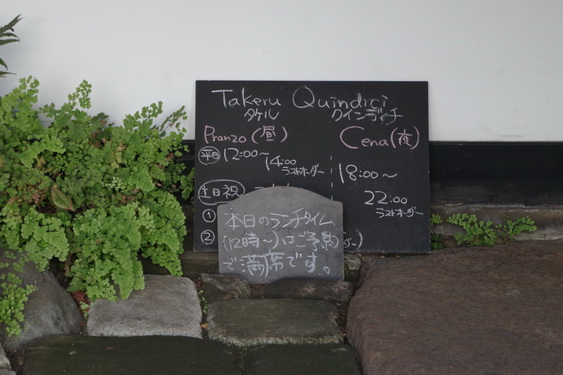 Takeru Quindici
タケル クインディチ
Pranzo(昼)
平日 12:00〜
14:00
ラストオーダー
土日祝
①
②
Cena(夜)
18:00〜
22:00
ラストオーダー
本日のランチタイム
(12時〜)はご予約
で満席です。